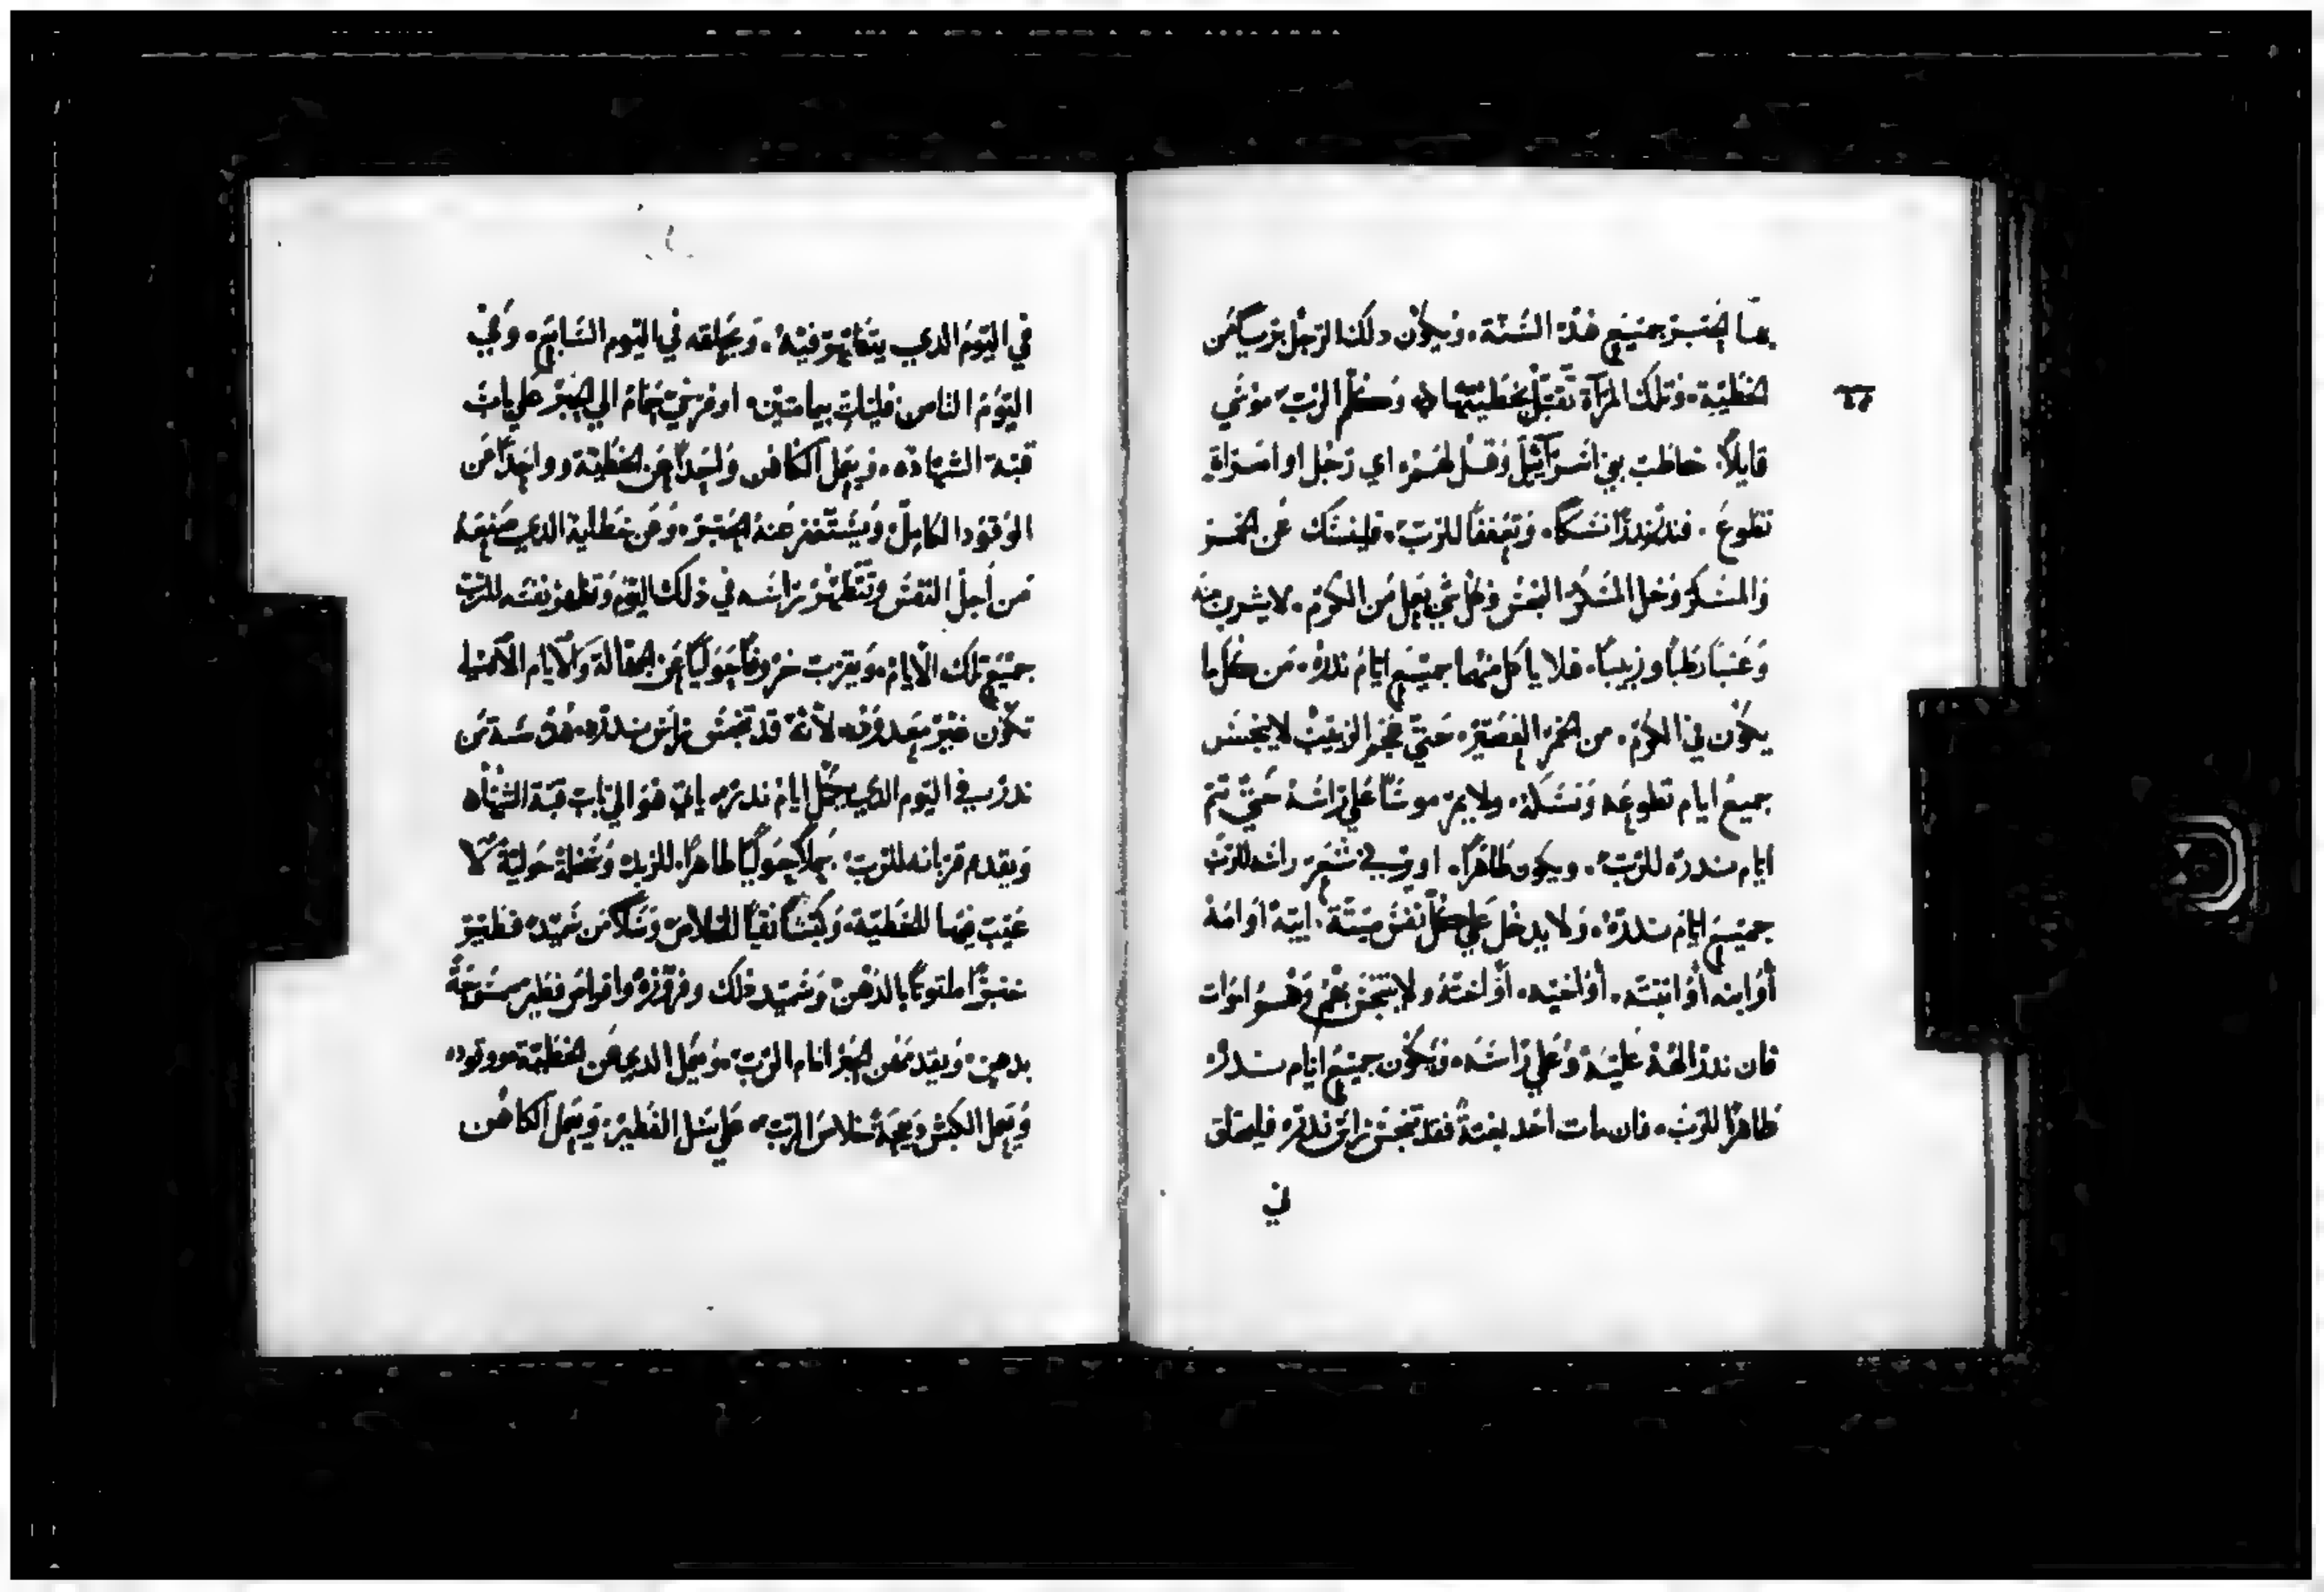 بها الحبر جميع هذه السنة. ويكون دلك الرجل بريا من
الخطية. وتلك المرآة تقبل بخطيتها وكلم الرب موسي
قايلاً خاطب بني اسرآييل وقل لهم اي رجل او امراة
تطوع. فندر ندرًا نسكا. وتعففا للرب. فليمسك عن الخمر
والمسكر وخل المسكر النجس وكل شي يعمل من الكرم. لا يشرب منه
وعنبا رطبا وزبيبا. فلا ياكل منهما جميع ايام ندره. من كل ما
يكون في الكرم. من الخمر العصير. حتي عجم الزبيب لا يتجنس
جميع ايام تطوعه ونسكه. ولا يمر موسا علي راسه حتي تتم
ايام ندره للرب. ويكون طاهرًا. شعر راسه للرب
جميع ايام ندره. ولا يدخل علي كل نفس ميتة. ابيه او امه
او ابنه او ابنته. او اخيه. او اخته ولا يتنجس بهم وهم اموات
فان ندر الهه عليه وعلي راسه. ويكون جميع ايام ندره
طاهرًا للرب. فان مات احد بغتة فقد تنجس راس ندره فليحلق
في
في اليوم الدي يتطهر فيه. ويحلقه في اليوم السابع. وفي
اليوم الثامن فليات بيمامتين. او فرخي حمام الي الحبر علي باب
قبة الشهاده. ويعمل الكاهن واحدًا عن الخطية وواحدًا من
الوقود الكامل ويستغفر عنه الحبر. ومن خطاية الدي صنعه
من اجل النفس وتتطهر راسه في ذلك اليوم وتطهر نفسه للرب
جميع تلك الايام. ويقرب خروفا حوليا عن الجهالة والايام الاولي
تكون غير معدودة. لانه قد تنجس راس ندره. هده سنة من
ندر في اليوم الدي يكمل ايام ندره ياتي هو الي باب قبة الشهاده
ويقدم قربانه للرب. حملا حوليا طاهرا. ونعجة حولية لا
عيب فيها للخطية. وكبشا نقيا للخلاص وسلا من سميد فطير
خبزًا ملتوتا بالدهن وسميد ذلك وفرززه واقراص فطير ممسوحة
بدهن. ويقدمهن الحبر امام الرب. ويعمل الدي عن الخطية ووقوده
ويعمل الكبش ذبيحة خلاص الرب. علي سل الفطير. ويعمل الكاهن